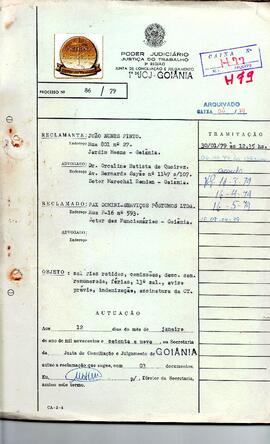 PODER JUDICIÁRIO
JUSTIÇA DO TRABALHO
3ª REGIÃO
JUNTA DE CONCILIAÇÃO E JULGAMENTO
1ª JCJ - GOIÂNIA
CAIXA Nº
H99
H99
PROCESSO Nº 86 / 79
ARQUIVADO
CAIXA
RECLAMANTE: JOÃO NUNES PINTO.
Endereço Rua 801 nº 27.
Jardim - Goiânia.
ADVOGADO: Dr. Orcalino Batista de Queiroz.
Endereço Av. Bernardo Sayão nº 1147 s/107.
Setor Marechal Rondon - Goiania.
RECLAMADO: PAX DOMINI-SERVIÇOS PÓSTUMOS LTDA.
Endereço Rua P-16 nº 593.
Setor dos Funcionários - Goiânia.
ADVOGADO:
Endereço
TRAMITAÇÃO
30/01/79 às 12.15 hs.
16-4-79
16-5-79
OBJETO: sal rios retidos, comissões, desc. sem.
remunerado, férias, 13º sal., aviso
prévio, indenização, assinatura da CT.
AUTUAÇÃO
Aos 12 dias do mês de janeiro
do ano de mil novecentos e setenta e nove, na Secretaria
da Junta de Conciliação e Julgamento de GOIÂNIA
autuo a reclamação que segue, com 03 documentos.
Eu p/. Diretor da Secretaria,
assino este termo.